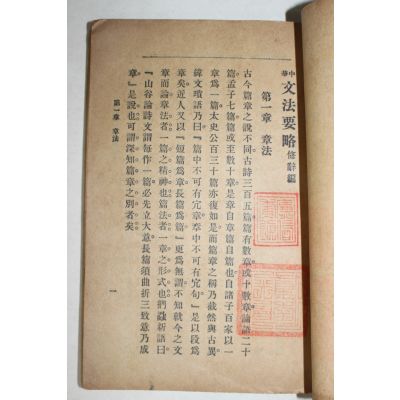 中華
文法要略 修辭編
第一章 章法
古今篇章之說不同古詩三百五篇篇有數章或十數章論語二十
篇孟子七篇篇或至數十章是章自章篇自篇也自諸子百家以一
章爲一篇太史公百三十篇亦復如是而篇章之稱乃截然與古異
緯文瑣語乃曰『篇中不可有冗章章中不可有冗句』是以段爲
章矣近人又以『短篇爲章長篇爲篇』更爲無謂不知就今之文
章而論章法者一篇之精神也篇法者一章之形式也捫蝨新語曰
『山谷論詩文謂每作一篇必先立大意長篇須曲折三致意乃成
章』是說也可謂深知篇章之別者矣
第一章 章法
一